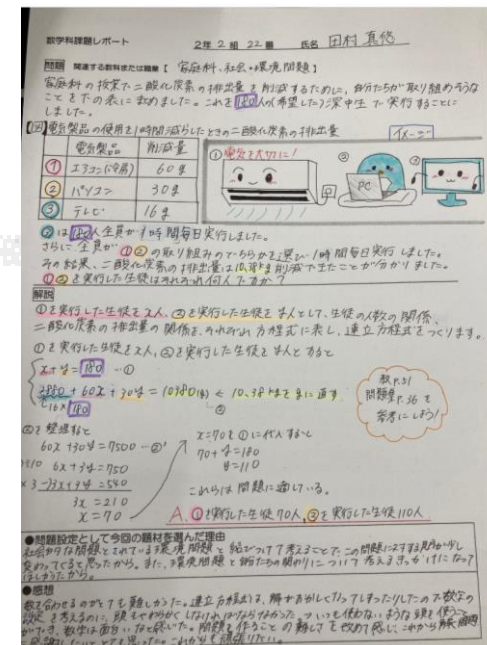 数学科課題レポート 2年 2組 22番 氏名 田村 真悠
問題 関連する教科または職業【 家庭科、社会・環境問題 】
家庭科の授業で二酸化炭素の排出量を削減するために、自分たちが取り組めそうな
ことを下の表にまとめました。これを180人(希望した)深中生で実行することに
しました。
【図】電気製品の使用を1時間減らしたときの二酸化炭素の排出量 イメージ
電気製品 削減量
① エアコン(冷房) 60g
② パソコン 30g
③ テレビ 16g
① 電気を大切に!
②
PC
③
③は180人全員が1時間毎日実行しました。
さらに全員が①②の取り組みのどちらかを選び1時間毎日実行しました。
その結果、二酸化炭素の排出量は10.38kg削減できたことが分かりました。
①②を実行した生徒はそれぞれ何人ですか?
解説
①を実行した生徒をx人、②を実行した生徒をy人として、生徒の人数の関係、
二酸化炭素の排出量の関係を、それぞれ方程式に表し、連立方程式をつくります。
①を実行した生徒をx人、②を実行した生徒をy人とすると
x+y=180 …①
2880+60x+30y=10380(g) ← 10.38kgをgに直す
16×180 ②
教P.51
問題集P.36を
参考にしよう!
②を整理すると
60x+30y=7500 …②'
6x+3y=750
3x+3y=540
3x=210
x=70
x=70を①に代入すると
70+y=180
y=110
これらは問題に適している。
A. ①を実行した生徒70人、②を実行した生徒110人
●問題設定として今回の題材を選んだ理由
社会的な問題とされている環境問題と結びつけて考えることで、この問題に対する見方が少し
変わってくると思ったから。また、環境問題と自分たちの関わりについて考えるきっかけになって
ほしかったから。
●感想
数を合わせるのがとても難しかった。連立方程式は、解がおかしくなってしまったりしたので数字の
設定を考えるのに、頭をやわらかくしなければならなかった。いつも使わないような頭を使うこと
ができ、数学は面白いなと感じた。問題を作ることの難しさを改めて感じ、これから